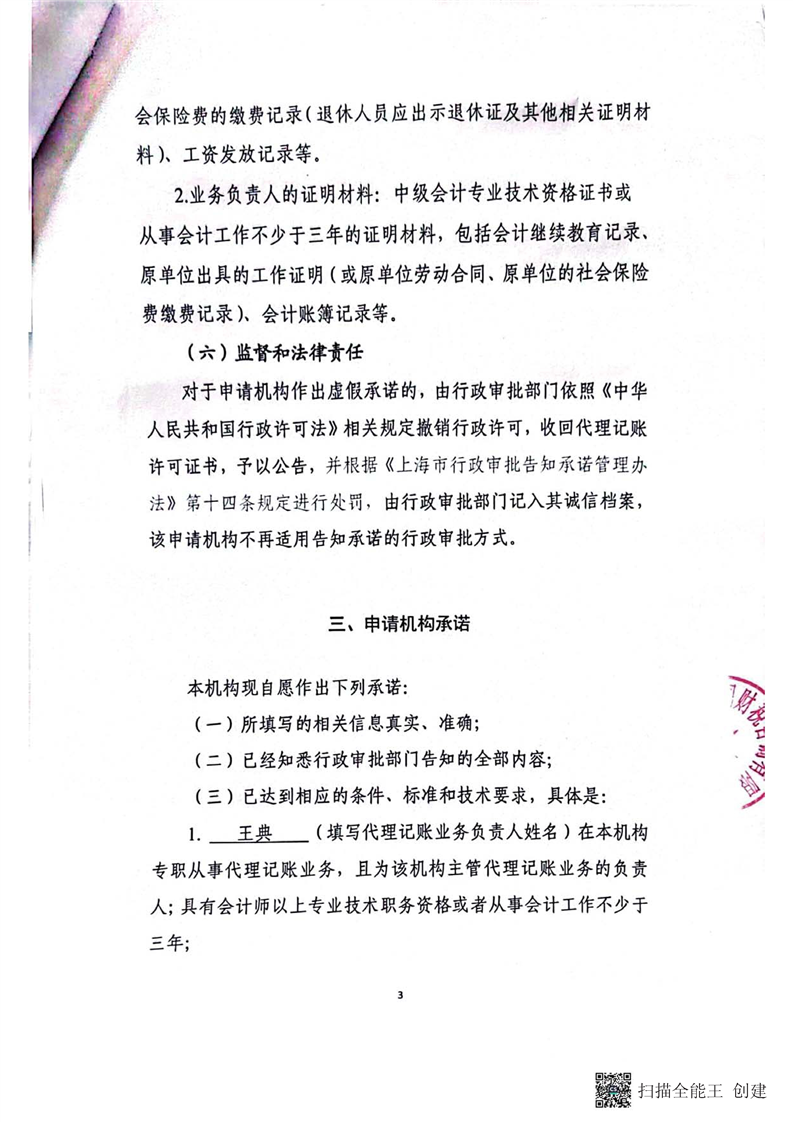 会保险费的缴费记录（退休人员应出示退休证及其他相关证明材
料）、工资发放记录等。
2.业务负责人的证明材料：中级会计专业技术资格证书或
从事会计工作不少于三年的证明材料，包括会计继续教育记录、
原单位出具的工作证明（或原单位劳动合同、原单位的社会保险
费缴费记录）、会计账簿记录等。
（六）监督和法律责任
对于申请机构作出虚假承诺的，由行政审批部门依照《中华
人民共和国行政许可法》相关规定撤销行政许可，收回代理记账
许可证书，予以公告，并根据《上海市行政审批告知承诺管理办
法》第十四条规定进行处罚，由行政审批部门记入其诚信档案，
该申请机构不再适用告知承诺的行政审批方式。
三、申请机构承诺
本机构现自愿作出下列承诺：
（一）所填写的相关信息真实、准确；
（二）已经知悉行政审批部门告知的全部内容；
（三）已达到相应的条件、标准和技术要求，具体是：
1. 王典 （填写代理记账业务负责人姓名）在本机构
专职从事代理记账业务，且为该机构主管代理记账业务的负责
人；具有会计师以上专业技术职务资格或者从事会计工作不少于
三年；
财税
3
扫描全能王 创建